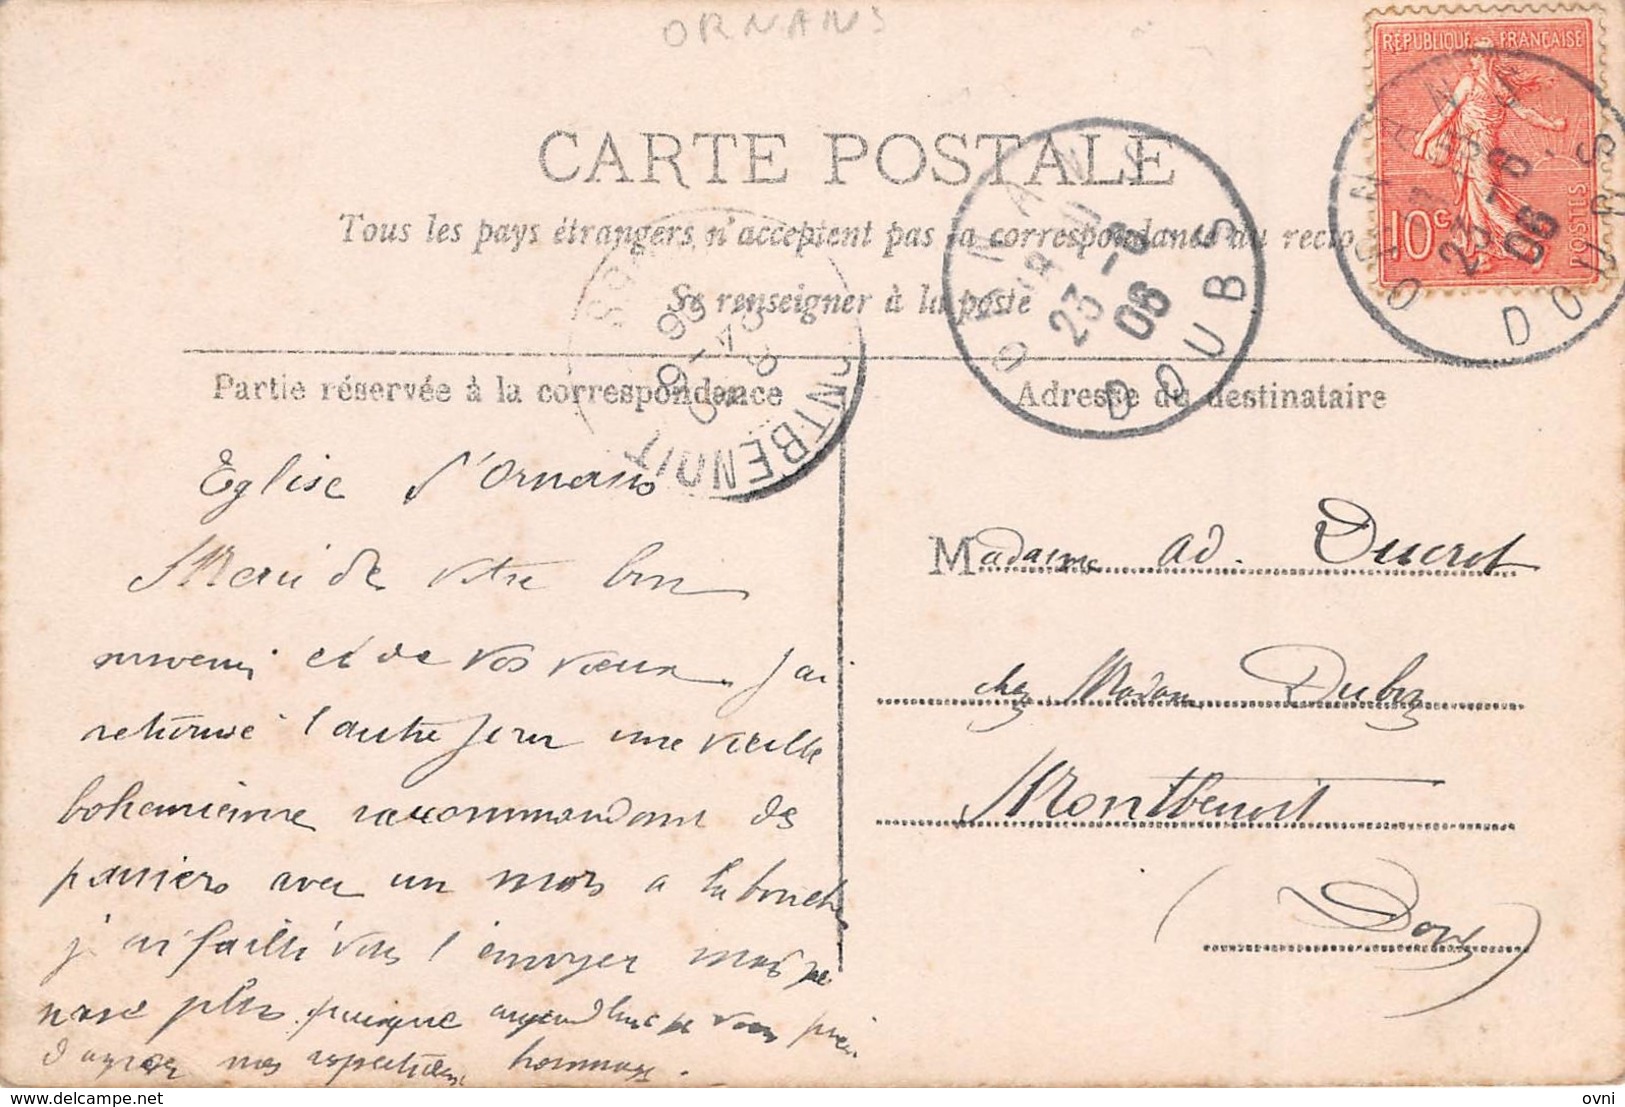 ORNANS
RÉPUBLIQUE FRANÇAISE
10c
POSTES
CARTE POSTALE
Tous les pays étrangers n'acceptent pas la correspondance au recto
Se renseigner à la poste
ORNANS
23 -6
06
DOUBS
ORNANS
23 -6
06
DOUBS
MONTBENOIT
Partie réservée à la correspondance
Adresse du destinataire
Eglise d'Ornans
Merci de votre bon
souvenir et de vos vœux. J'ai
retrouvé l'autre jour une vieille
bohemienne raccommodant des
paniers avec un mors a la bouche
j'ai failli vous l'envoyer mais je
n'ose plus puisque aujourd'hui je vous prie
d'agréer mes respectueux hommages.
Madame Ad. Ducrot
chez Madame Duboz
Montbenoit
(Doubs)
ovni